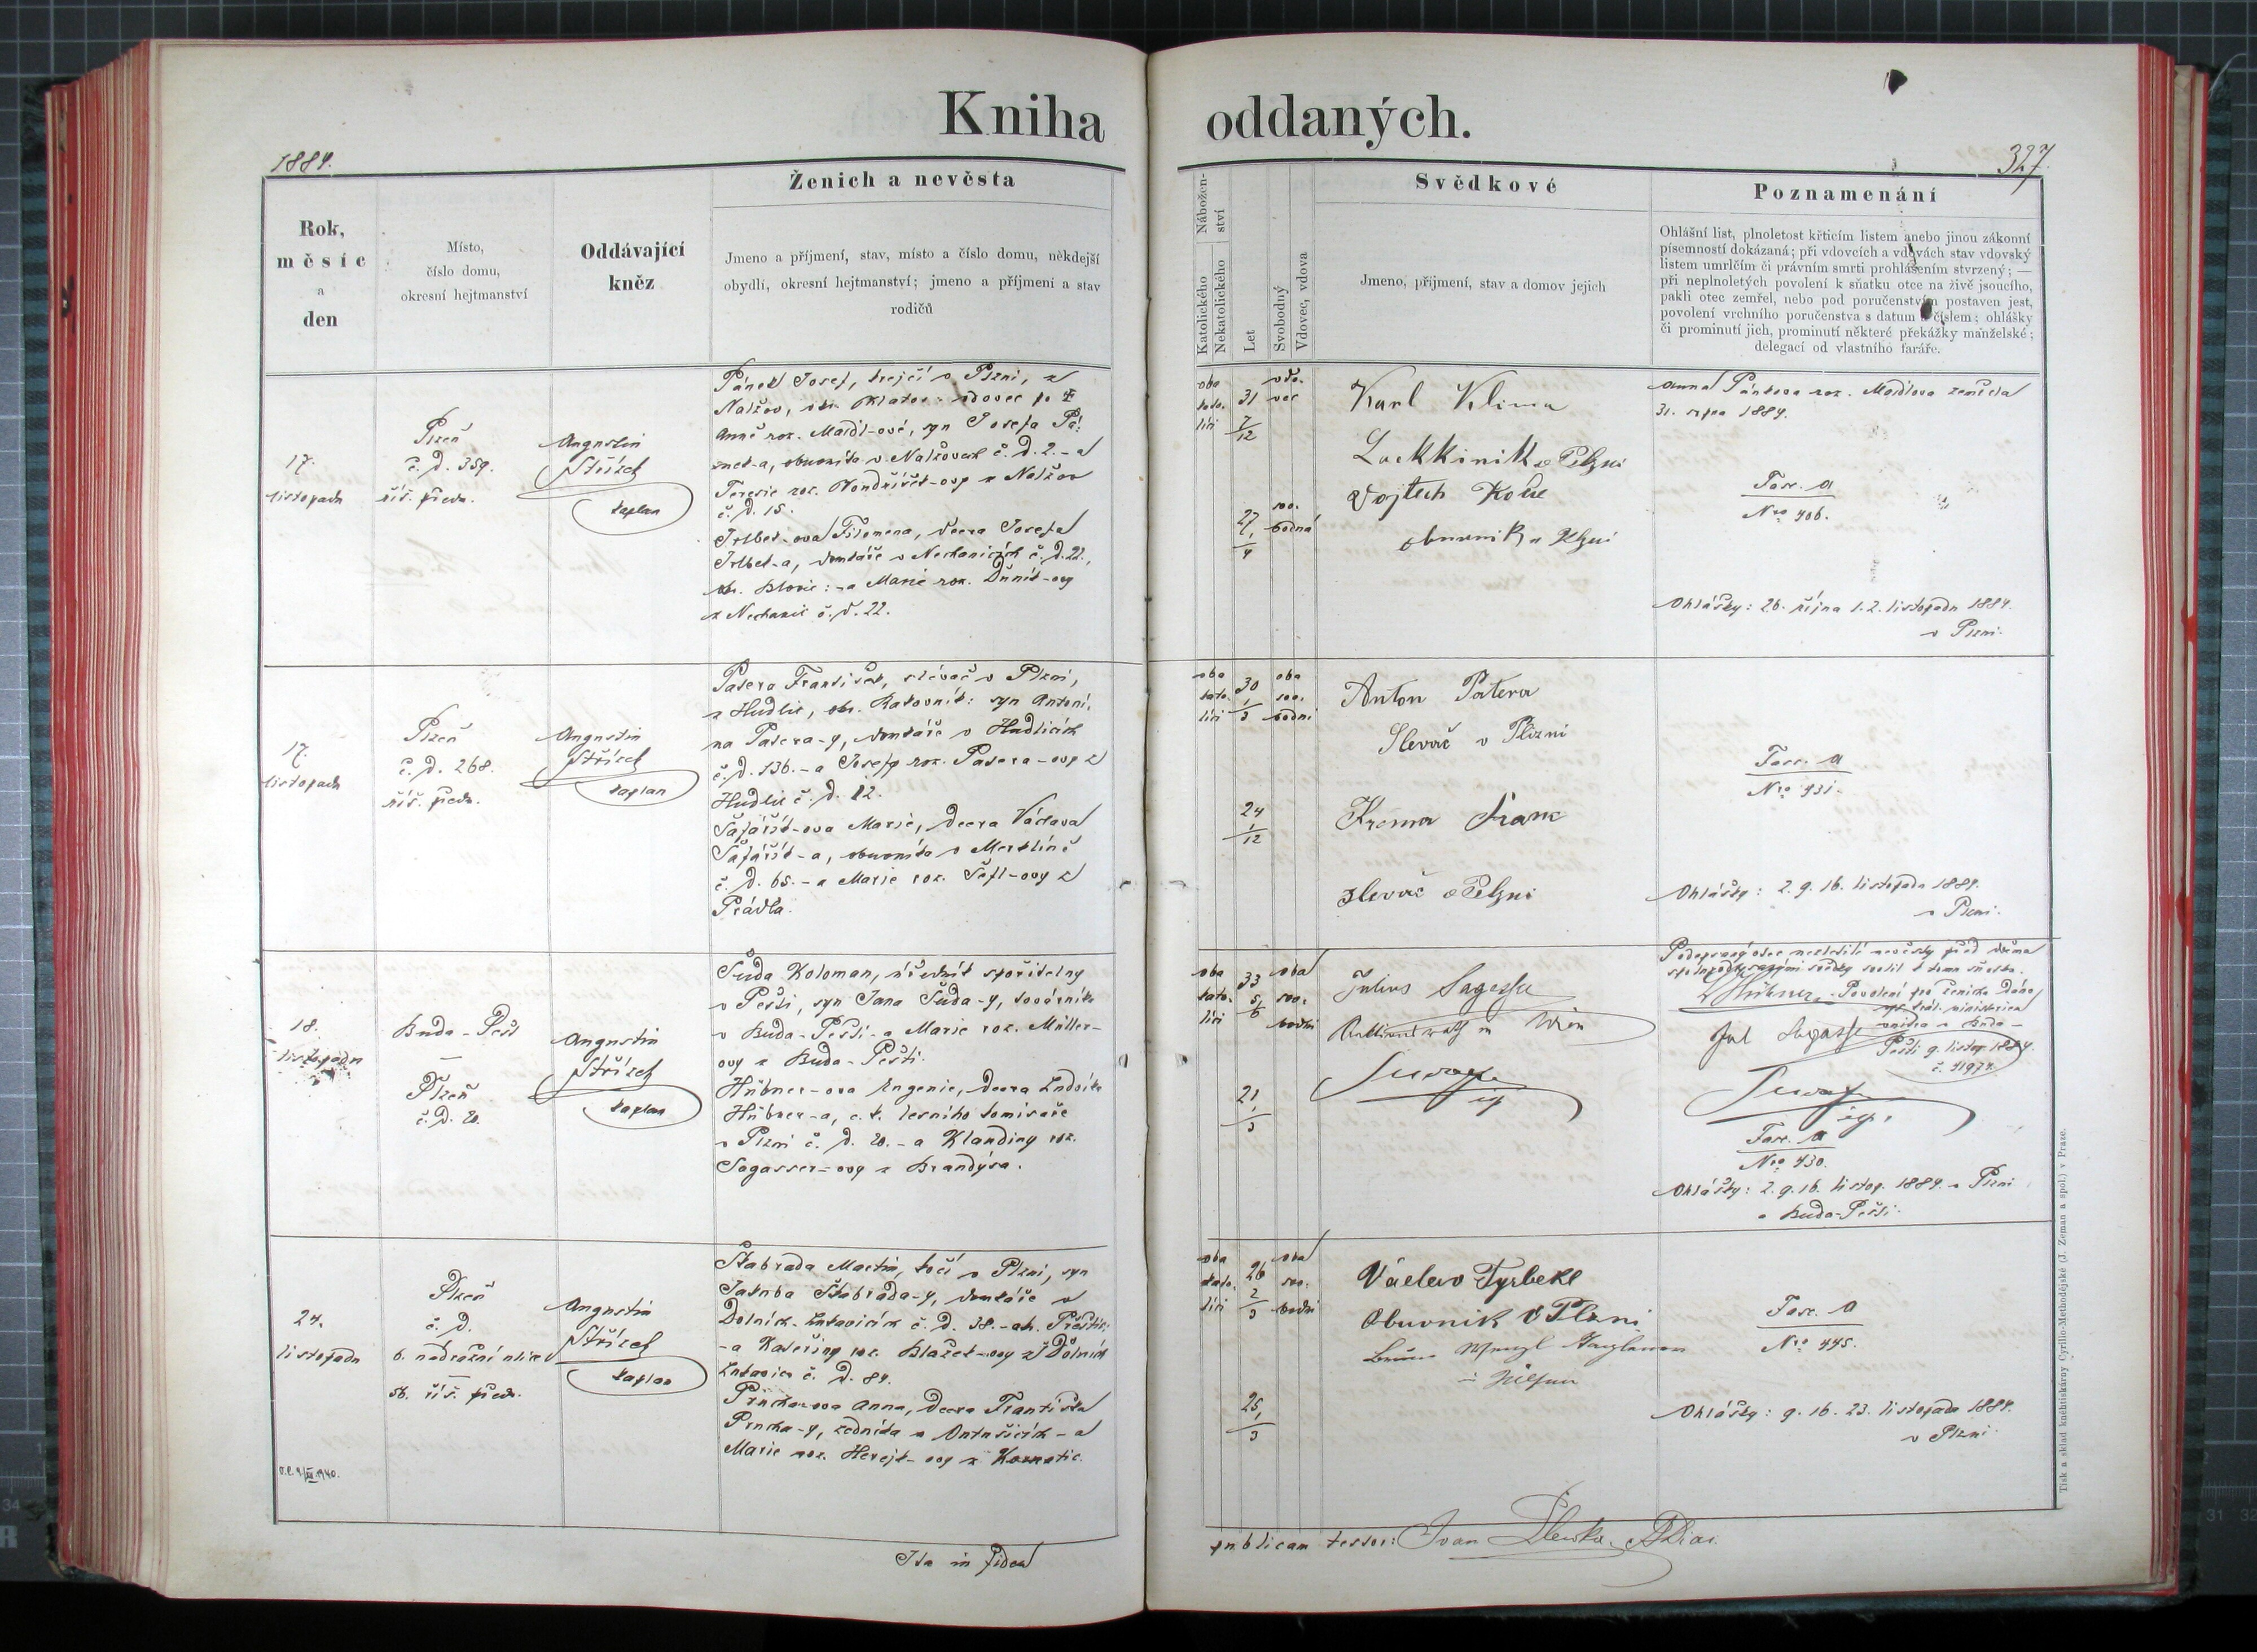 Kniha oddaných.
1884.
327.
Rok,
měsíc
a
den
Místo,
číslo domu,
okresní hejtmanství
Oddávající
kněz
Ženich a nevěsta
Jmeno a příjmení, stav, místo a číslo domu, někdejší
obydlí, okresní hejtmanství; jmeno a příjmení a stav
rodičů
Nábožen-
ství
Katolického
Nekatolického
Let
Svobodný
Vdovec, vdova
Svědkové
Jmeno, přijmení, stav a domov jejich
Poznamenání
Ohlášní list, plnoletost křticím listem anebo jinou zákonní
písemností dokázaná; při vdovcích a vdovách stav vdovský
listem umrlčím či právním smrti prohlášením stvrzený; —
při neplnoletých povolení k sňatku otce na živě jsoucího,
pakli otec zemřel, nebo pod poručenstvím postaven jest,
povolení vrchního poručenstva s datum a číslem; ohlášky
či prominutí jich, prominutí některé překážky manželské;
delegací od vlastního faráře.
17.
listopadu
Plzeň
č. d. 359.
říš. předm.
Augustin
Střízek
kaplan
Pánek Josef, krejčí v Plzni, z
Nalžov, okr. Klatov: vdovec po †
Anně roz. Maidl-ové, syn Josefa Pá-
nek-a, obuvníka v Nalžovech č. d. 2. - a
Teresie roz. Vondřišek-ovy z Nalžov
č. d. 15.
Filomena, dcera Josefa
domkáře v Nechanicích č. d. 22.,
okr. Blovic: - a Marie roz.
z Nechanic č. d. 22.
oba
kato.
líci
31
7/12
vdo-
vec
27
1/4
svo-
bodná
Karl Klima
v Pelzni
Vojtech
obuvnik v Plzni
Anna Pánkova roz. Maidlova zemřela
31. srpna 1884.
Fasc. A
Nro 406.
Ohlášky: 26. října 1. 2. listopadu 1884.
v Plzni.
17.
listopadu
Plzeň
č. d. 268.
říš. předm.
Augustin
Střízek
kaplan
Patera František, slévač v Plzni,
z Hudlic, okr. Rakovník: syn Antoní-
na Patera-y, domkáře v Hudlicích
č. d. 136. - a Josefy roz. Patera-ovy z
Hudlic č. d. 12.
Šafařík-ova Marie, dcera Václava
Šafařík-a, obuvníka v Merklíně
č. d. 65. - a Marie roz. Šefl-ovy z
Prádla.
oba
kato.
líci
30
1/3
oba
svo-
bodni
24
1/12
Anton Patera
Slevač v Plizni
Krema Frank
Slevač v Pelzni
Fasc. A
Nro 431.
Ohlášky: 2. 9. 16. listopadu 1884.
v Plzni.
18.
listopadu
Buda-Pešť
—
Plzeň
č. d. 20.
Augustin
Střízek
kaplan
Šuda Koloman, úředník spořitelny
v Pešti, syn Jana Šuda-y, továrníka
v Buda-Pešti - a Marie roz. Müller-
ovy z Buda-Pešti.
Hübner-ova Eugenie, dcera Ludvíka
Hübner-a, c. k. lesního komisaře
v Plzni č. d. 20. - a Klaudiny roz.
Sagasser-ovy z Brandýsa.
oba
kato.
líci
33
5/6
oba
svo-
bodni
21
1/3
Julius Sagasser
in Wien
Podepsaný otec nezletilé nevěsty před dvěma
spolupodepsanými svědky svolil k tomu sňatku.
LHübner. Povolení pro ženicha dáno
král. ministeria
vnitra v Buda-
Pešti 9. listop. 1884.
č. 41974.
Jul Sagasser
Fasc. A
Nro 430.
Ohlášky: 2. 9. 16. listop. 1884. v Plzni
v Buda-Pešti.
24.
listopadu
Plzeň
č. d.
6. nádražní ulice
—
56. říš. předm.
Augustin
Střízek
kaplan
Škabrada Martin, kočí v Plzni, syn
Jakuba Škabrada-y, domkáře v
Dolních Lukavicích č. d. 38. - okr. Přeštic:
- a Kateřiny roz. Blažek-ovy z Dolních
Lukavic č. d. 84.
Průcha-ova Anna, dcera Františka
Průcha-y, zedníka z - a
Marie roz. Herejk-ovy z Kornatic.
oba
kato.
líci
26
2/3
oba
svo-
bodni
25
1/3
Václav Tyrbekl
Obuvnik v Plzni
Fasc. A
Nro 445.
Ohlášky: 9. 16. 23. listopadu 1884.
v Plzni.
Ita in fidem
publicam testor:
Tisk a sklad knihtiskárny Cyrillo-Methodějské (J. Zeman a spol.) v Praze.